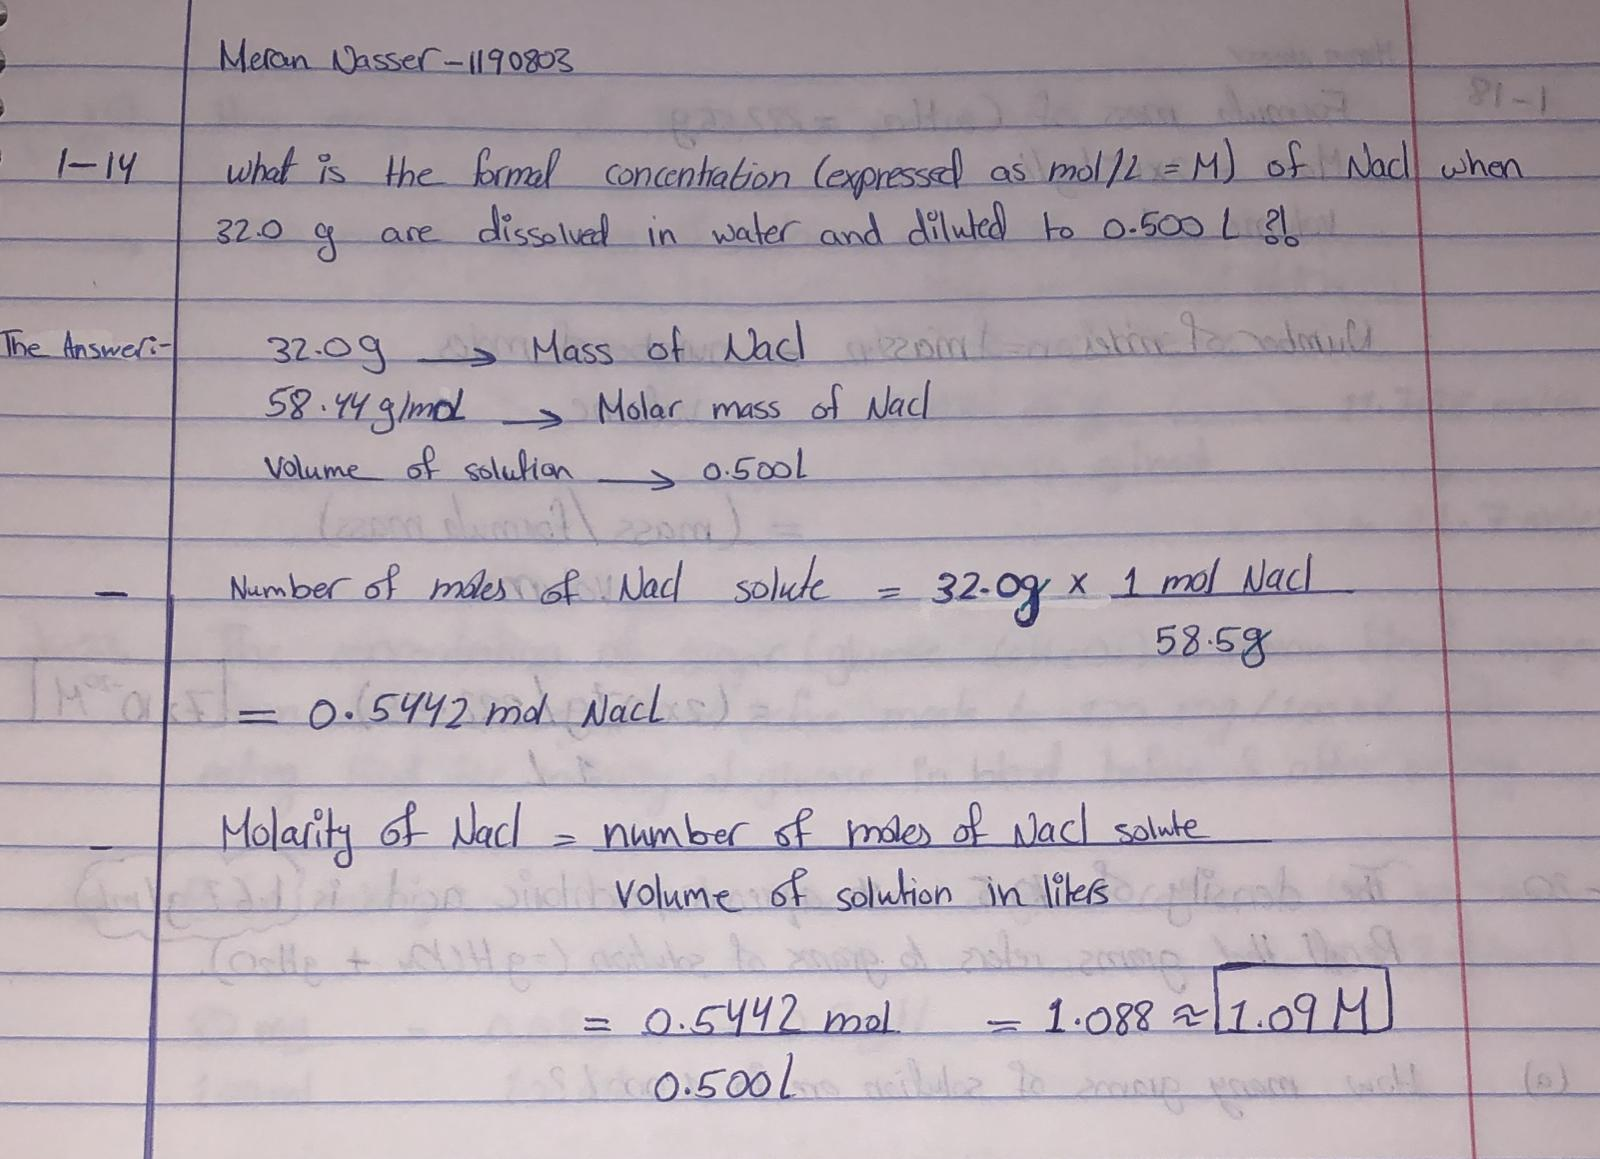 Meran Nasser - 1190803
1-14 what is the formal concentration (expressed as mol/L = M) of Nacl when
32.0 g are dissolved in water and diluted to 0.500 L ?!
The Answer:- 32.0g → Mass of Nacl
58.44 g/mol → Molar mass of Nacl
Volume of solution → 0.500L
- Number of moles of Nacl solute = 32.0g x 1 mol Nacl
58.5g
= 0.5442 mol Nacl
- Molarity of Nacl = number of moles of Nacl solute
Volume of solution in liters
= 0.5442 mol = 1.088 ≈ 1.09 M
0.500L